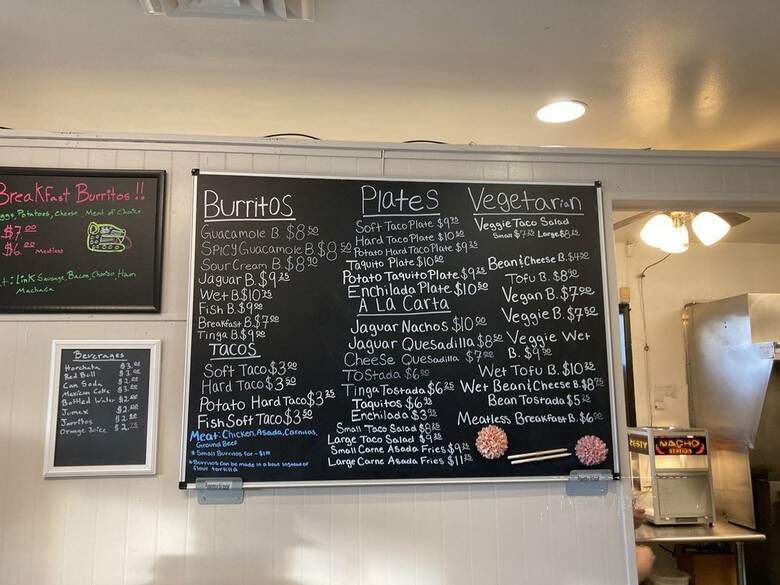 Breakfast Burritos !!
Eggs, Potatoes, Cheese, Meat of Choice
$7.00
$6.00 Meatless
Link Sausage, Bacon, Chorizo, Ham
Machaca
Beverages
Horchata $3.00
Red Bull $3.00
Can Soda $2.00
Mexican Coke $3.00
Bottled Water $2.00
Jumex $2.00
Jarritos
Orange Juice
Burritos
Guacamole B. $8.50
Spicy Guacamole B. $8.50
Sour Cream B. $8.50
Jaguar B. $9.25
Wet B. $10.75
Fish B. $9.00
Breakfast B. $7.00
Tinga B. $9.00
Tacos
Soft Taco $3.00
Hard Taco $3.50
Potato Hard Taco $3.25
Fish Soft Taco $3.50
Meat: Chicken, Asada, Carnitas,
Ground Beef
* Small Burritos for -$1.00
* Burritos can be made in a bowl instead of
flour tortilla
Plates
Soft Taco Plate
Hard Taco Plate $10.50
Potato Hard Taco Plate
Taquito Plate $10.50
Potato Taquito Plate $9.25
Enchilada Plate $10.50
A La Carta
Jaguar Nachos $10.00
Jaguar Quesadilla $8.50
Cheese Quesadilla $7.00
Tostada $6.00
Tinga Tostada $6.25
Taquitos
Enchilada
Small Taco Salad
Large Taco Salad
Small Carne Asada Fries $9.25
Large Carne Asada Fries $11.25
Vegetarian
Veggie Taco Salad
Small $7.25 Large $8.25
Bean & Cheese B.
Tofu B.
Vegan B. $7.00
Veggie B. $7.50
Veggie Wet
B.
Wet Tofu B.
Wet Bean & Cheese B. $8.75
Bean Tostada
Meatless Breakfast B. $6.00
ZESTY NACHO